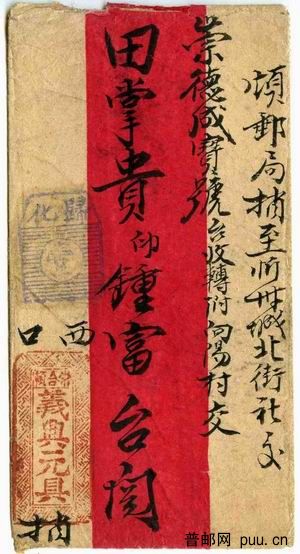 煩郵局捎至忻州城北街社交
崇德成寶號台收轉附向陽村交
田掌貴印鍾富台閱
歸化
西口
義興元具
捎
普邮网 puu.cn